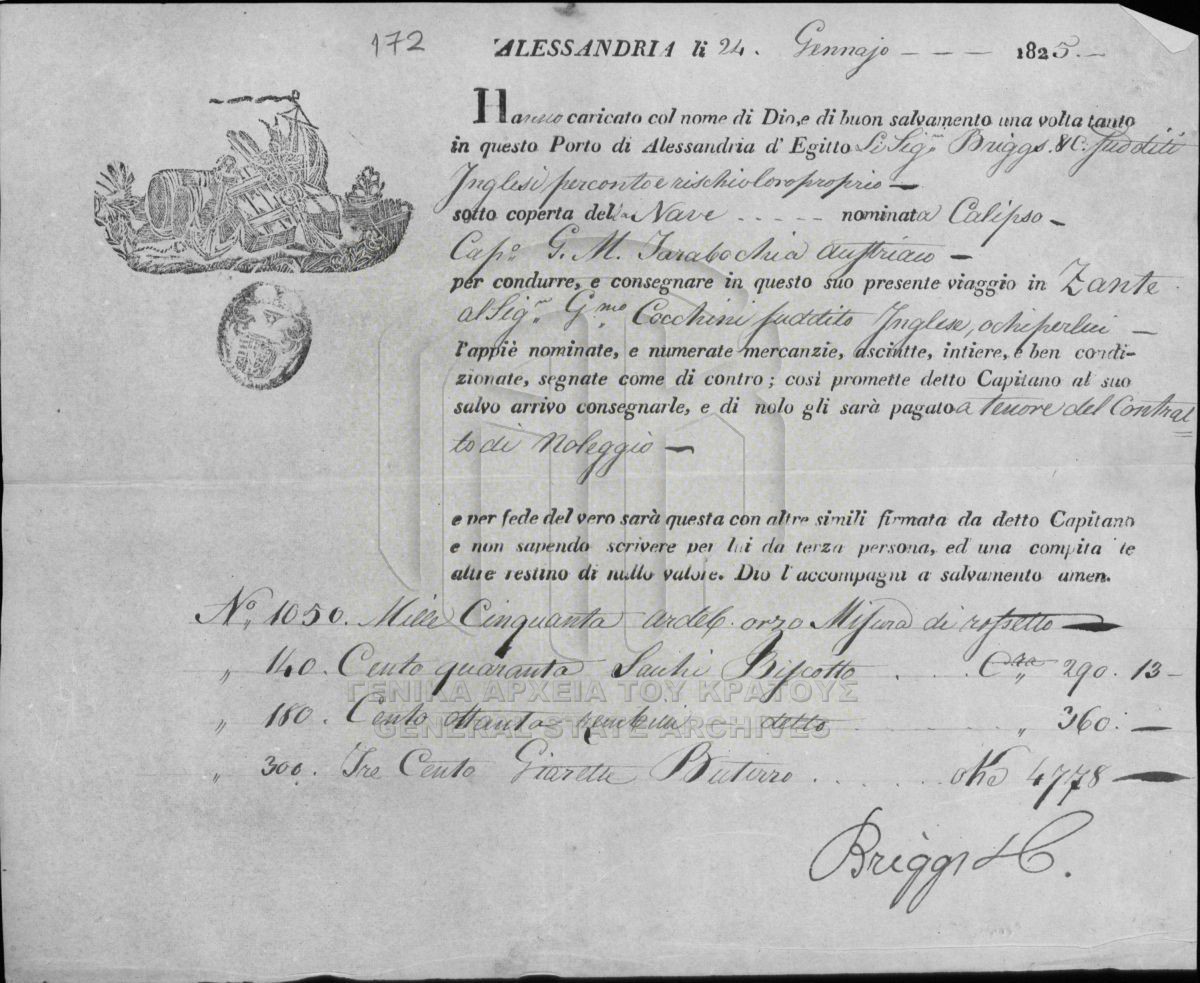 172
ALESSANDRIA li 24. Gennajo — — — 1825.—
Hanno caricato col nome di Dio, e di buon salvamento una volta tanto
in questo Porto di Alessandria d' Egitto Li Sigri Briggs & C. sudditi
Inglesi, per conto e rischio loro proprio —
sotto coperta della Nave - - - - - nominata Calipso —
Capo G. M. Tarabochia Austriaco —
per condurre, e consegnare in questo suo presente viaggio in Zante
al Sigr Gmo Cocchini suddito Inglese, o chi per lui —
l'appiè nominate, e numerate mercanzie, asciutte, intiere, e ben condi-
zionate, segnate come di contro; così promette detto Capitano al suo
salvo arrivo consegnarle, e di nolo gli sarà pagato a tenore del Contrat
to di Noleggio —
e per fede del vero sarà questa con altre simili firmata da detto Capitano
e non sapendo scrivere per lui da terza persona, ed una compita le
altre restino di nullo valore. Dio l'accompagni a salvamento amen.
No. 1050. Mille Cinquanta ardeb. orzo Misura di rossetto —
" 140. Cento quaranta Sacchi Biscotto . . . . Cra " 290. 13 —
" 180. Cento ottanta zembini — detto " 360. —
" 300. Tre Cento Giarette Butirro . . . . . oke 4778 —
Briggs & C.
ΓΕΝΙΚΑ ΑΡΧΕΙΑ ΤΟΥ ΚΡΑΤΟΥΣ
GENERAL STATE ARCHIVES